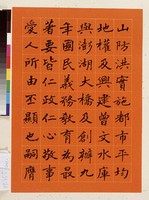 山防洪實施都市平均
地權及興建文水庫
與澎湖大橋及創辦九
年國民義務教育為最
著要皆仁政仁心敬事
愛人所由丕顯也嗣膺